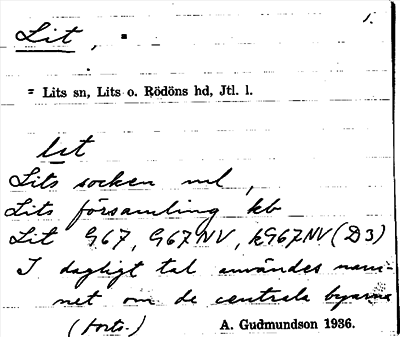 1.
Lit, =
= Lits sn, Lits o. Rödöns hd, Jtl. l.
Lit
Lits socken ml,
Lits församling kb
Lit G67, G67NV, kG67NV (D3)
I dagligt tal användes nam-
net om de centrala byarna
(forts.) A. Gudmundson 1936.